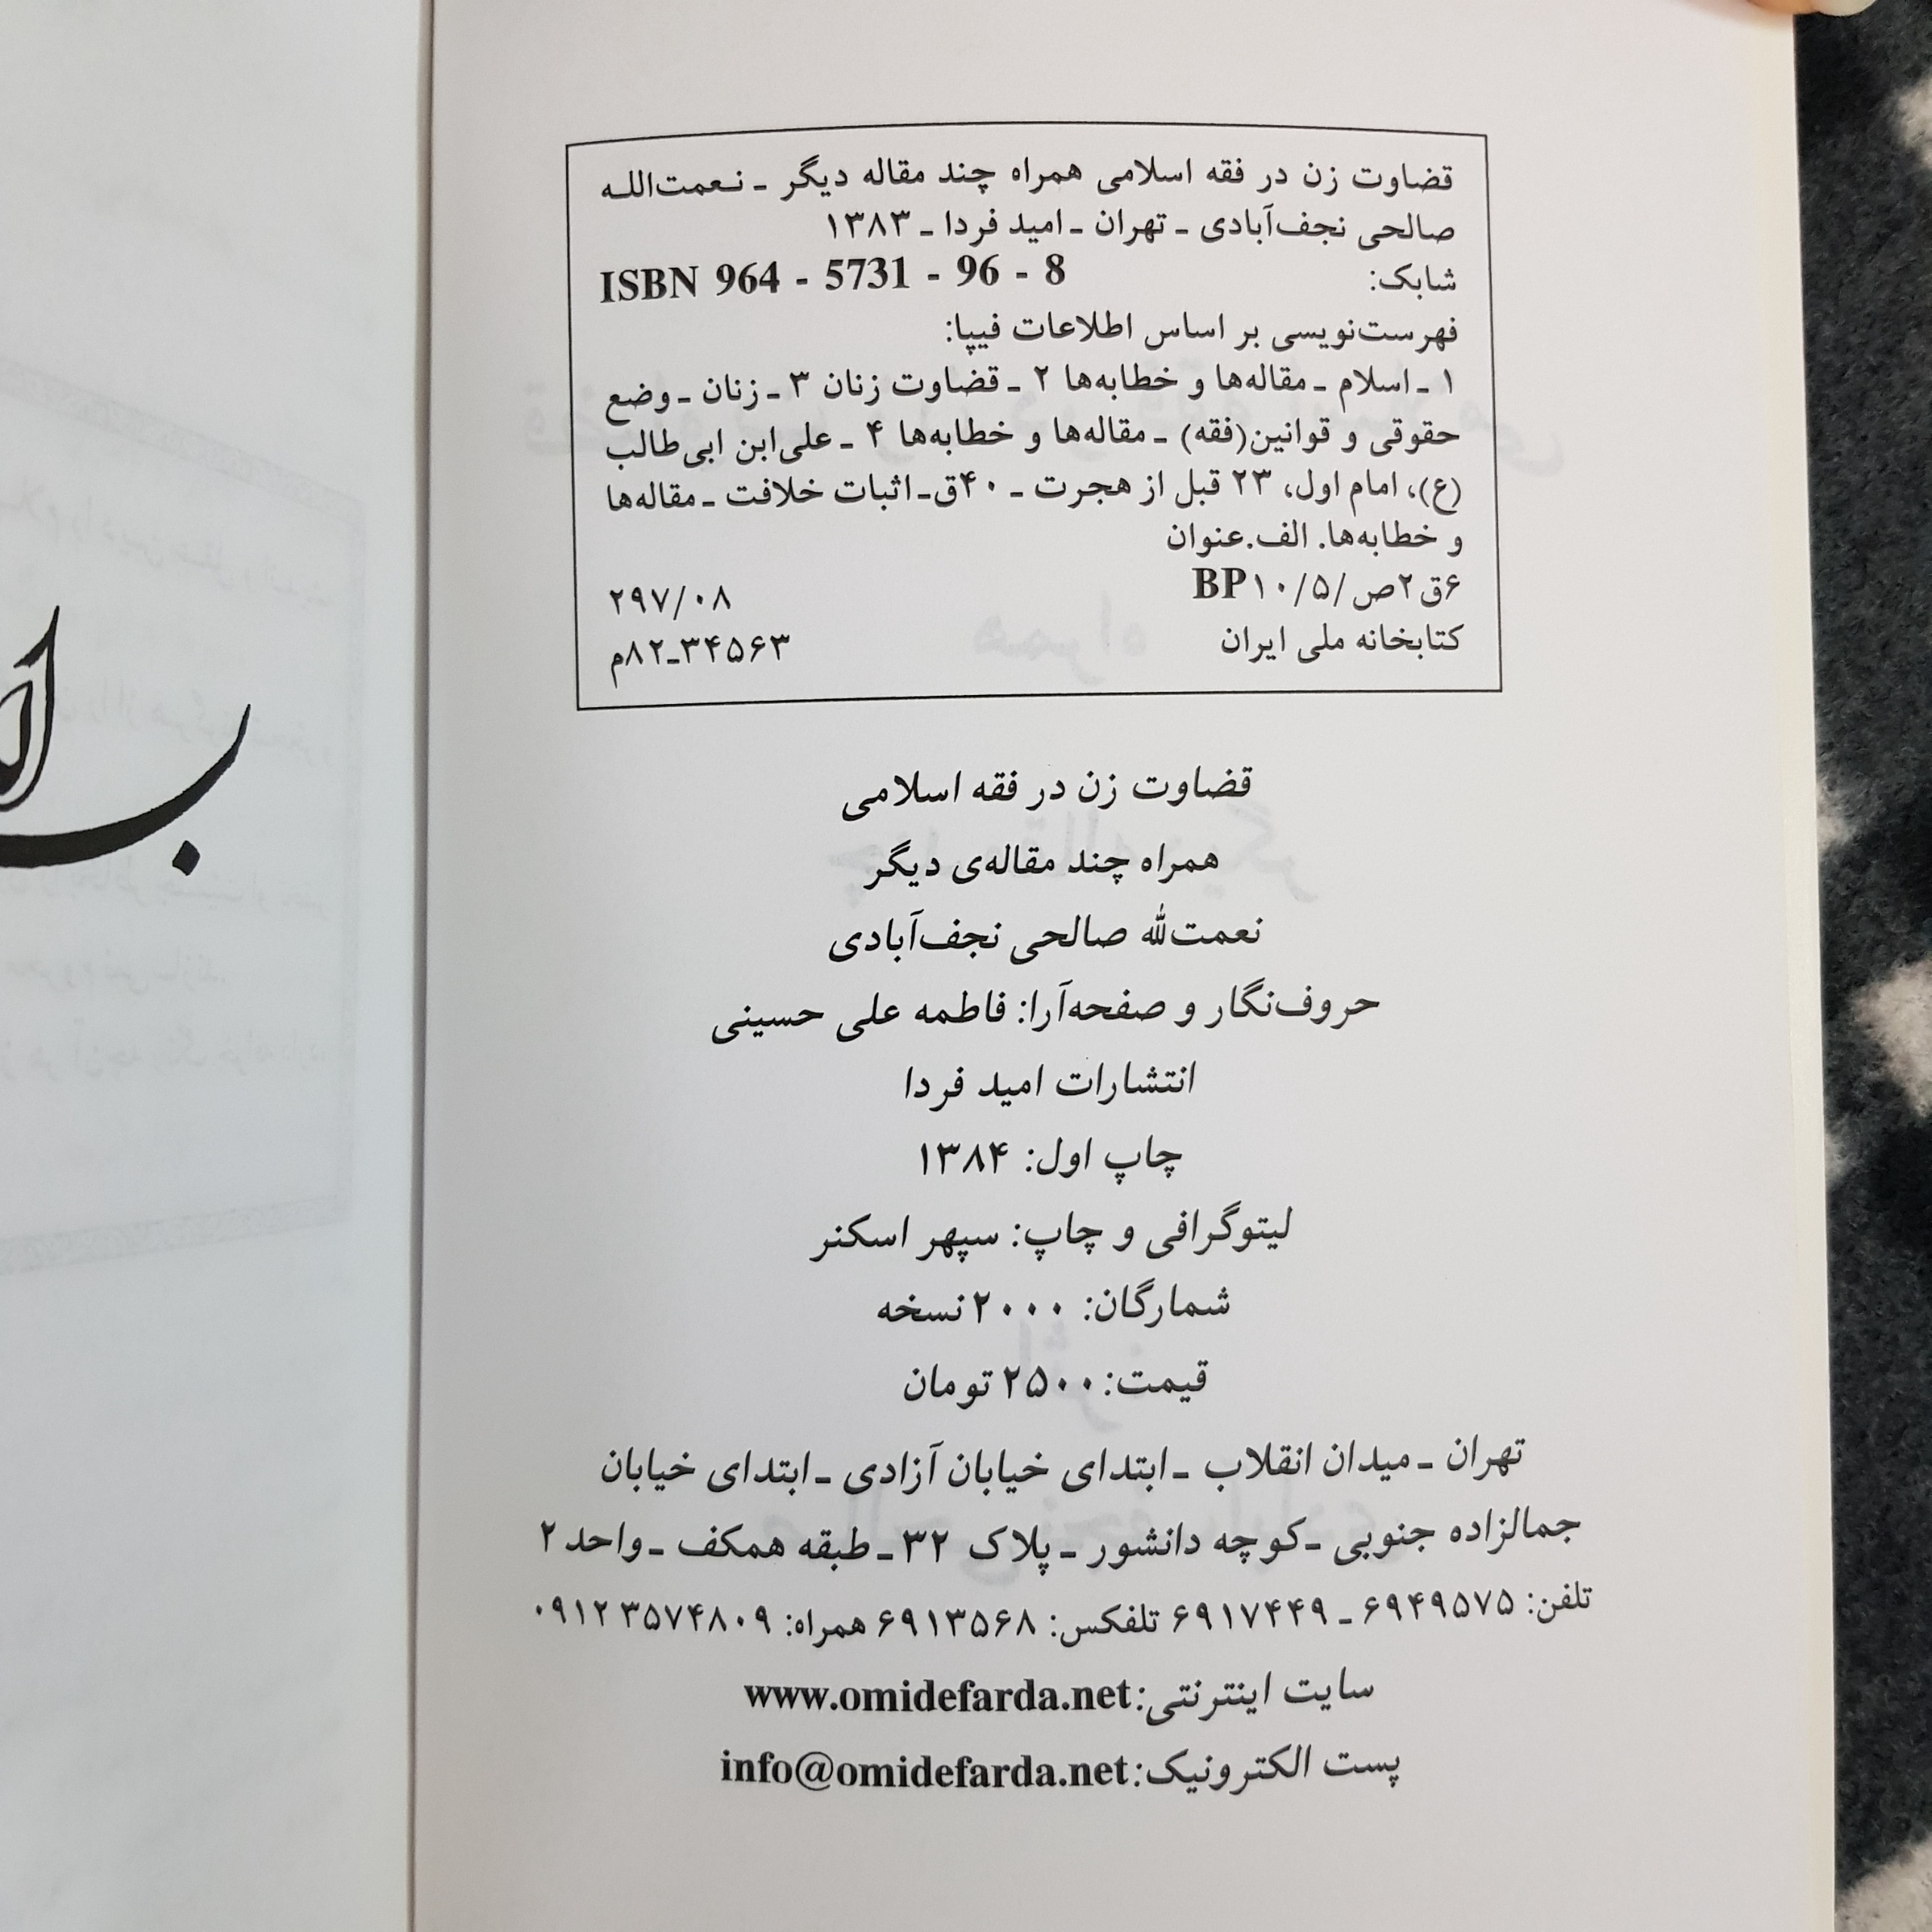 قضاوت زن در فقه اسلامی همراه چند مقاله دیگر ـ نـعمت‌اللـه
صالحی نجف‌آبادی ـ تهران ـ امید فردا ـ ۱۳۸۳
شابک: ISBN 964 - 5731 - 96 - 8
فهرست‌نویسی بر اساس اطلاعات فیپا:
۱ ـ اسلام ـ مقاله‌ها و خطابه‌ها ۲ ـ قضاوت زنان ۳ ـ زنان ـ وضع
حقوقی و قوانین(فقه) ـ مقاله‌ها و خطابه‌ها ۴ ـ علی‌ابن ابی‌طالب
(ع)، امام اول، ۲۳ قبل از هجرت ـ ۴۰ق‌ـ اثبات خلافت ـ مقاله‌ها
و خطابه‌ها. الف.عنوان
۶ق۲ص/BP۱۰/۵ ۲۹۷/۰۸
کتابخانه ملی ایران ۳۴۵۶۳ـ۸۲م
قضاوت زن در فقه اسلامی
همراه چند مقاله‌ی دیگر
نعمت‌لله صالحی نجف‌آبادی
حروف‌نگار و صفحه‌آرا: فاطمه علی حسینی
انتشارات امید فردا
چاپ اول: ۱۳۸۴
لیتوگرافی و چاپ: سپهر اسکنر
شمارگان: ۲۰۰۰ نسخه
قیمت: ۲۵۰۰ تومان
تهران ـ میدان انقلاب ـ ابتدای خیابان آزادی ـ ابتدای خیابان
جمالزاده جنوبی ـ کوچه دانشور ـ پلاک ۳۲ ـ طبقه همکف ـ واحد ۲
تلفن: ۶۹۴۹۵۷۵ ـ ۶۹۱۷۴۴۹ تلفکس: ۶۹۱۳۵۶۸ همراه: ۰۹۱۲۳۵۷۴۸۰۹
سایت اینترنتی: www.omidefarda.net
پست الکترونیک: info@omidefarda.net